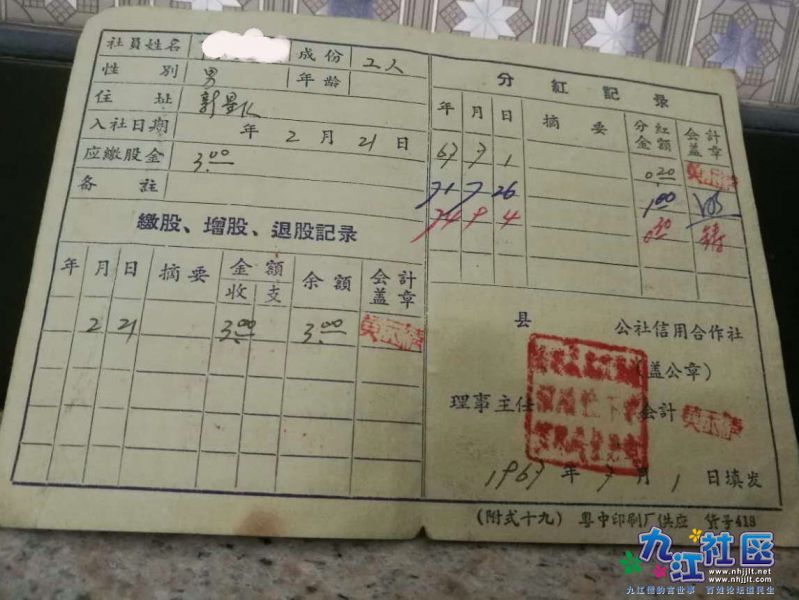 社員姓名 成份 工人
性別 男 年龄
住址
入社日期 年 2 月 21 日
应繳股金 3.00
备註
繳股、增股、退股記录
年 月 日 摘要 金額 收 支 余額 会計盖章
2 21 3.00 3.00
分紅記录
年 月 日 摘要 分紅金額 会計盖章
67 7 1 0.20
71 7 26 1.00
74 9 4 0.30
县 公社信用合作社
(盖公章)
理事主任 会計
1967 年 7 月 1 日填发
(附式十九) 粤中印刷厂供应 货号419
九江社区
www.nhjjlt.net
www.nhjjlt.com